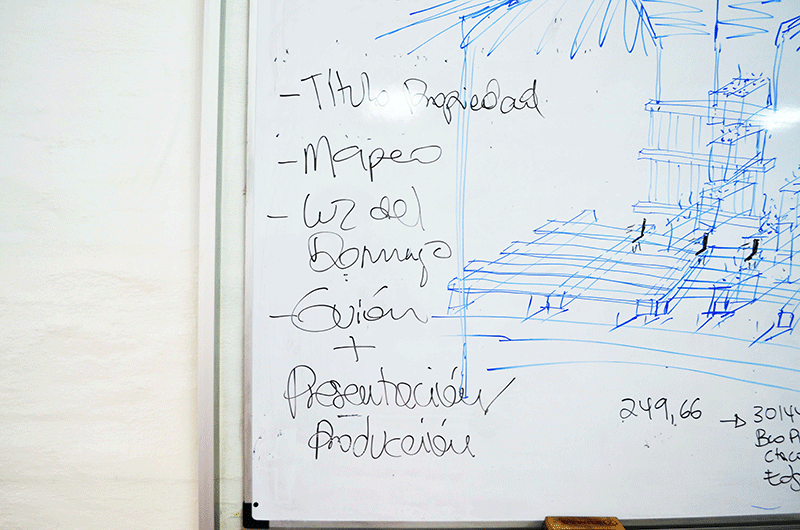 - Título Propiedad
- Mapeo
- Luz del
- Guión
+
Presentación
Producción
249,66 → 30144
Bco